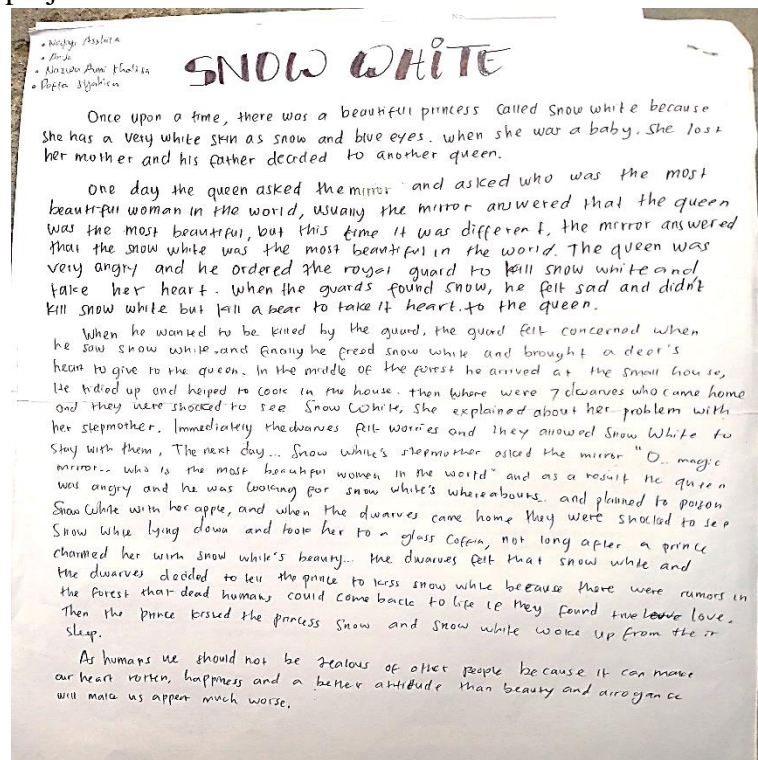 SNOW WHITE
• Nazwa Ami Khalisa
Once upon a time, there was a beautiful princess called Snow white because
she has a very white skin as snow and blue eyes. when she was a baby. She lost
her mother and his father decided to another queen.
One day the queen asked the mirror and asked who was the most
beautiful woman in the world, usually the mirror answered that the queen
was the most beautiful, but this time it was different, the mirror answered
that the snow white was the most beautiful in the world. The queen was
very angry and he ordered the royal guard to kill snow white and
take her heart. When the guards found snow, he felt sad and didn't
kill snow white but kill a bear to take it heart. to the queen.
When he wanted to be killed by the guard, the guard felt concerned when
he saw snow white. and finally he freed snow white and brought a deer's
heart to give to the queen. In the middle of the forest he arrived at the small house,
He tidied up and helped to cook in the house. then where were 7 dwarves who came home
and they were shocked to see Snow White, She explained about her problem with
her stepmother. Immediately the dwarves felt worries and they allowed Snow White to
Stay with them, The next day... Snow white's stepmother asked the mirror "O.. magic
mirror.. who is the most beautiful women in the world" and as a result the queen
was angry and he was looking for snow white's whereabours.. and planned to poison
Snow White with her apple, and when the dwarves came home they were shocked to see
Snow White lying down and took her to a glass coffin, not long after a prince
charmed her with snow white's beauty... the dwarves felt that snow white and
the dwarves decided to tell the prince to kiss snow white because there were rumors in
the forest that dead humans could come back to life if they found true love.
Then the prince kissed the princess Snow and snow white woke up from their
sleep.
As humans we should not be jealous of other people because it can make
our heart rotten, happiness and a better attitude than beauty and arrogance
will make us appear much worse.